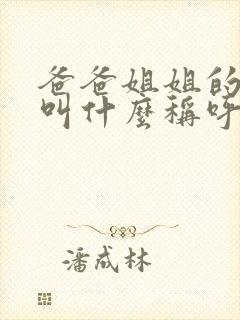 爸爸姐姐的
叫什麼稱呼
潘成林